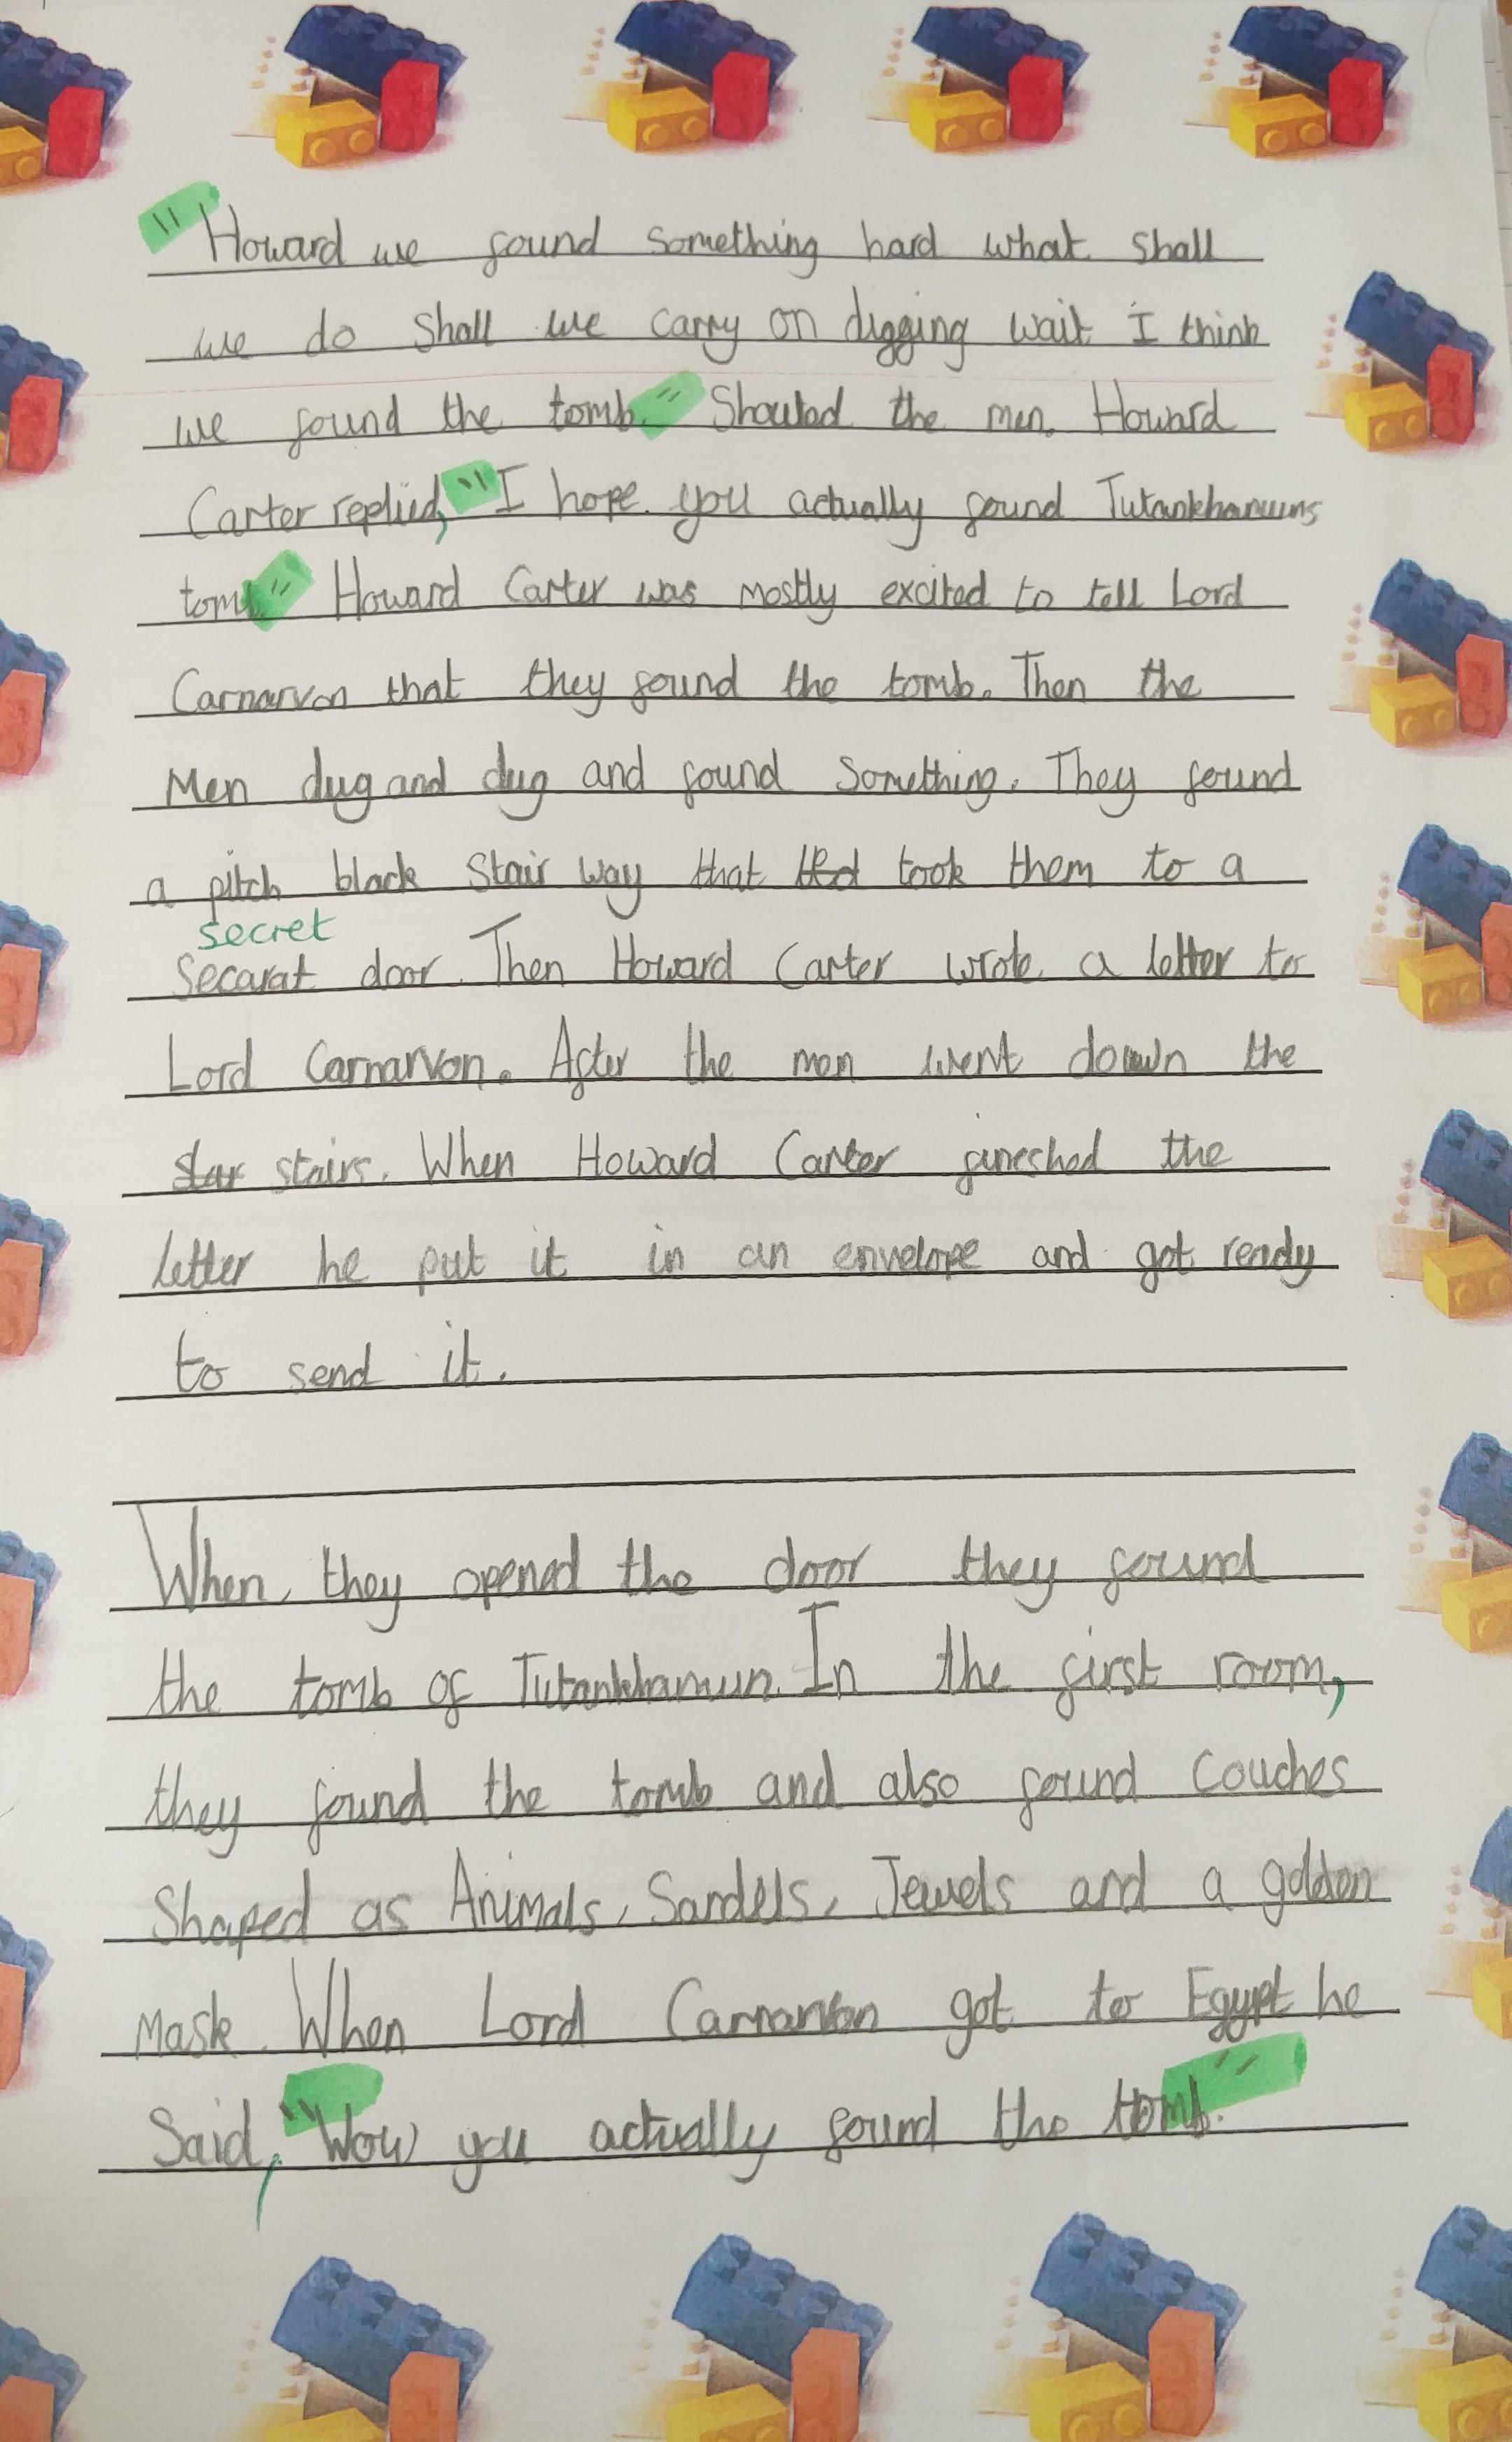 "Howard we found something hard what shall
we do shall we carry on digging wait I think
we found the tomb." Shouted the men. Howard
Carter replied, "I hope you actually found Tutankhamuns
tomb." Howard Carter was mostly excited to tell Lord
Carnarvon that they found the tomb. Then the
Men dug and dug and found something. They found
a pitch black stair way that took them to a
secret
secarat door. Then Howard Carter wrote a letter to
Lord Carnarvon. After the men went down the
star stairs. When Howard Carter fineshed the
letter he put it in an envelope and got ready
to send it.
When they opened the door they found
the tomb of Tutankhamun. In the first room,
they found the tomb and also found couches
shaped as Animals, Sandels, Jewels and a golden
mask. When Lord Carnarvon got to Egypt he
Said, "Wow you actually found the tomb."